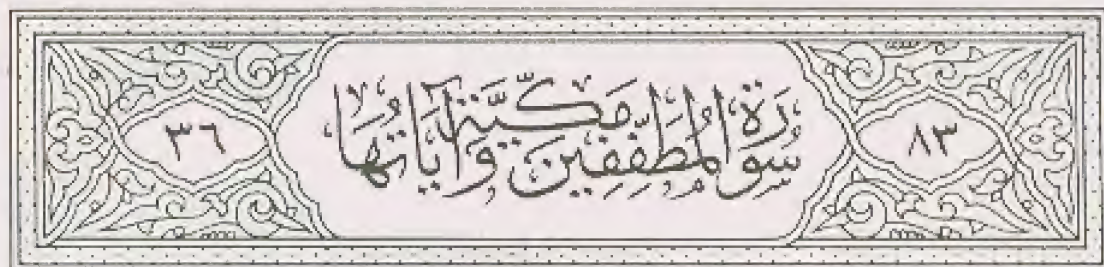 ٨٣ سُورَةُ المُطَفِّفِينَ مَكِّيَّة وَآيَاتُهَا ٣٦